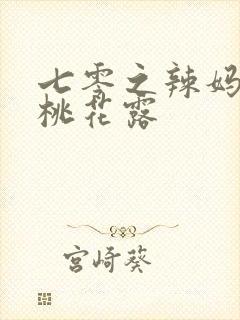 七零之辣妈
桃花露
宫崎葵